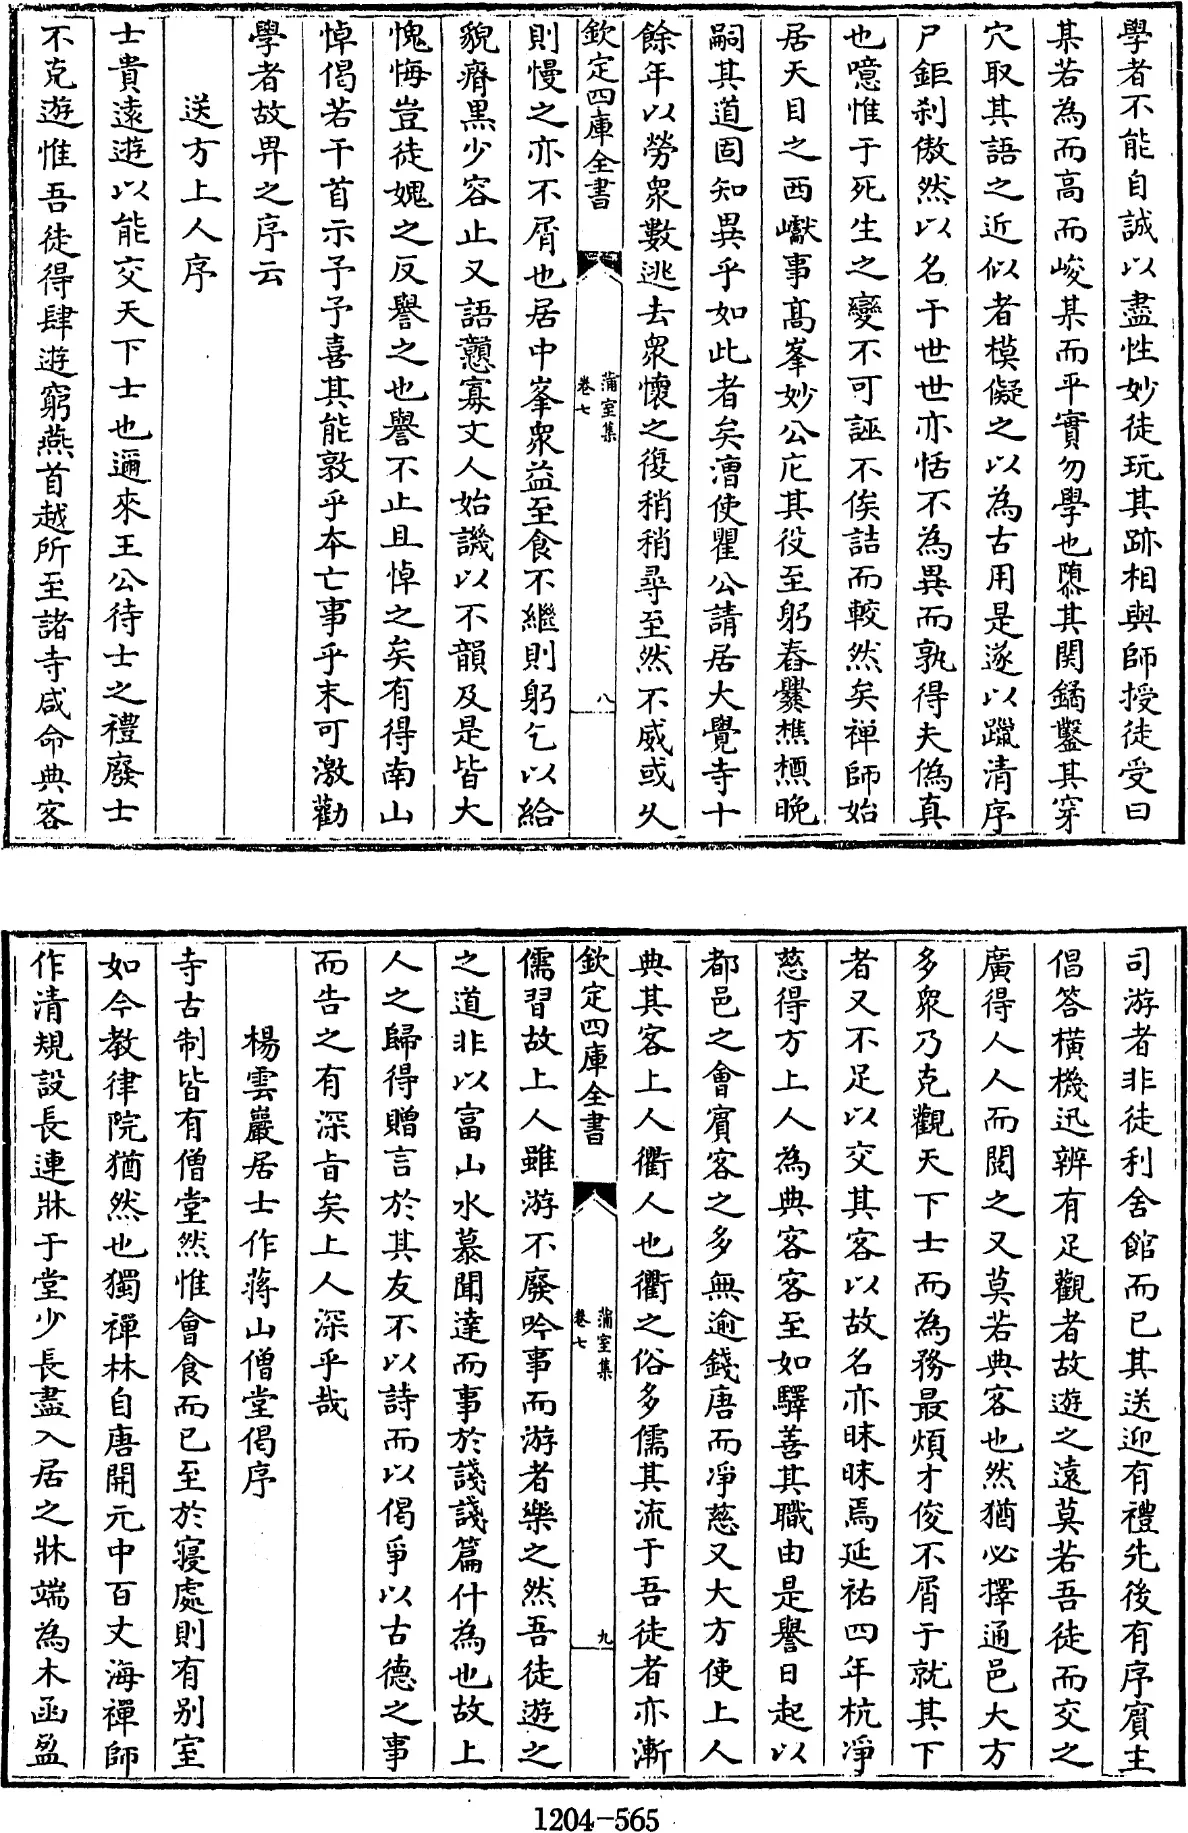 學者不能自誠以盡性妙徒玩其跡相與師授徒受曰
某若為而高而峻某而平實勿學也隳其関鐍鑿其穿
穴取其語之近似者模儗之以為古用是遂以躐清序
尸鉅刹傲然以名于世世亦恬不為異而孰得夫偽真
也噫惟于死生之變不可誣不俟詰而較然矣禅師始
居天目之西巘事髙峯妙公庀其役至躬舂爨樵槱晚
嗣其道固知異乎如此者矣漕使瞿公請居大覺寺十
餘年以勞衆數逃去衆懷之復稍稍尋至然不威或久
欽定四庫全書
蒲室集
卷七
八
則慢之亦不屑也居中峯衆益至食不繼則躬乞以給
貌瘠黒少容止又語戆寡文人始譏以不韻及是皆大
愧悔豈徒媿之反譽之也譽不止且悼之矣有得南山
悼偈若干首示予予喜其能敦乎本亡事乎末可激勸
學者故畀之序云
送方上人序
士貴遠遊以能交天下士也邇來王公待士之禮廢士
不克遊惟吾徒得肆遊窮燕首越所至諸寺咸命典客
司游者非徒利舍館而已其送迎有禮先後有序賓主
倡答橫機迅辨有足觀者故遊之遠莫若吾徒而交之
廣得人人而閱之又莫若典客也然猶必擇通邑大方
多衆乃克觀天下士而為務最煩才俊不屑于就其下
者又不足以交其客以故名亦昧昧焉延祐四年杭淨
慈得方上人為典客客至如驛善其職由是譽日起以
都邑之會賓客之多無逾錢唐而淨慈又大方使上人
典其客上人衢人也衢之俗多儒其流于吾徒者亦漸
欽定四庫全書
蒲室集
卷七
九
儒習故上人雖游不廢吟事而游者樂之然吾徒遊之
之道非以富山水慕聞達而事於諓諓篇什為也故上
人之歸得贈言於其友不以詩而以偈爭以古德之事
而告之有深旨矣上人深乎哉
楊雲巖居士作蔣山僧堂偈序
寺古制皆有僧堂然惟會食而已至於寝處則有别室
如今教律院猶然也獨禪林自唐開元中百丈海禪師
作清規設長連牀于堂少長盡入居之牀端為木函盈
1204-565